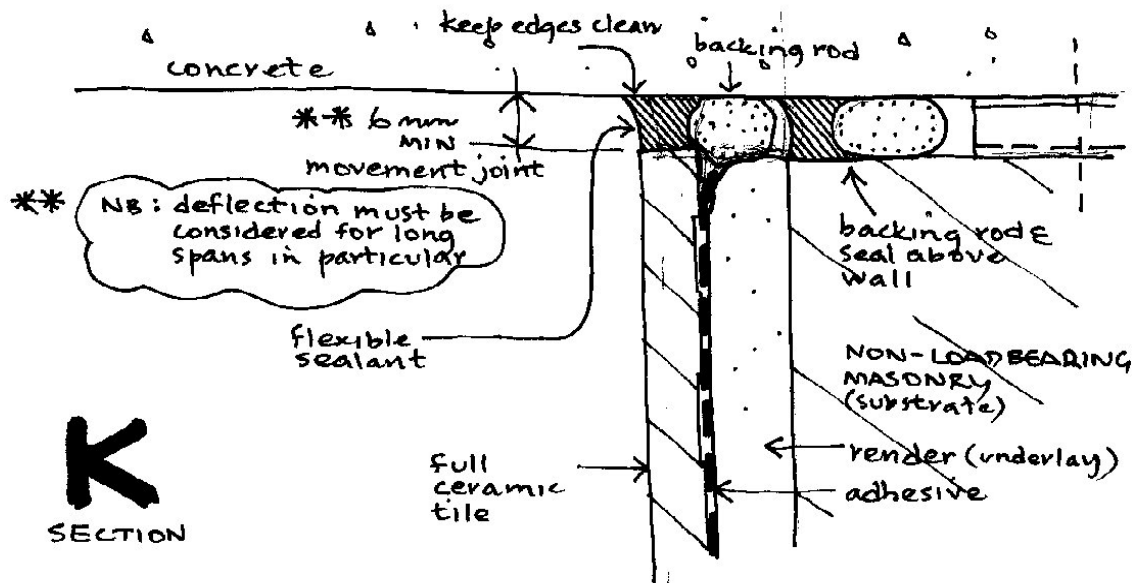 keep edges clean
backing rod
concrete
** 6 mm
MIN
movement joint
** NB: deflection must be
considered for long
spans in particular
backing rod &
seal above
wall
flexible
sealant
NON-LOADBEARING
MASONRY
(substrate)
render (underlay)
adhesive
full
ceramic
tile
K
SECTION